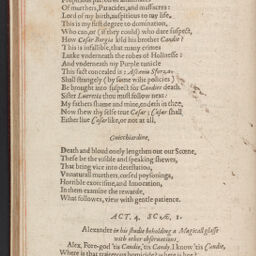 Of murthers, Paracides, and massacres:
Lord of my birth, auspitious to my life,
This is my first degree to domination,
Who can, or (if they could) who dare suspect,
How Cæsar Borgia sold his brother Candie?
This is infallible, that many crimes
Lurke vnderneath the robes of Holinesse:
And vnderneath my Purple tunicle
This fact concealed is; Astorra Sforza,
Shall strangely (by some wilie pollicies)
Be brought into suspect for Candies death.
Sister Lucretia thou must follow next:
My fathers shame and mine, endeth in thee,
Now shew thy selfe true Cæsar; Cæsar shall
Either liue Cæsar like, or not at all,
Guicchiardine,
Death and bloud onely lengthen out our Scœne,
These be the visible and speaking shewes,
That bring vice into detestation,
Vnnaturall murthers, cursed poysonings,
Horrible exorcisme, and Inuocation,
In them examine the rewarde,
What followes, view with gentle patience.
ACT. 4. SCÆ. 1.
Alexander in his studie beholding a Magicall glasse
with other obseruations.
Alex. Fore-god 'tis Candie, 'tis Candy. I know 'tis Candie,
Where is that traiterous homicide? where is hee?